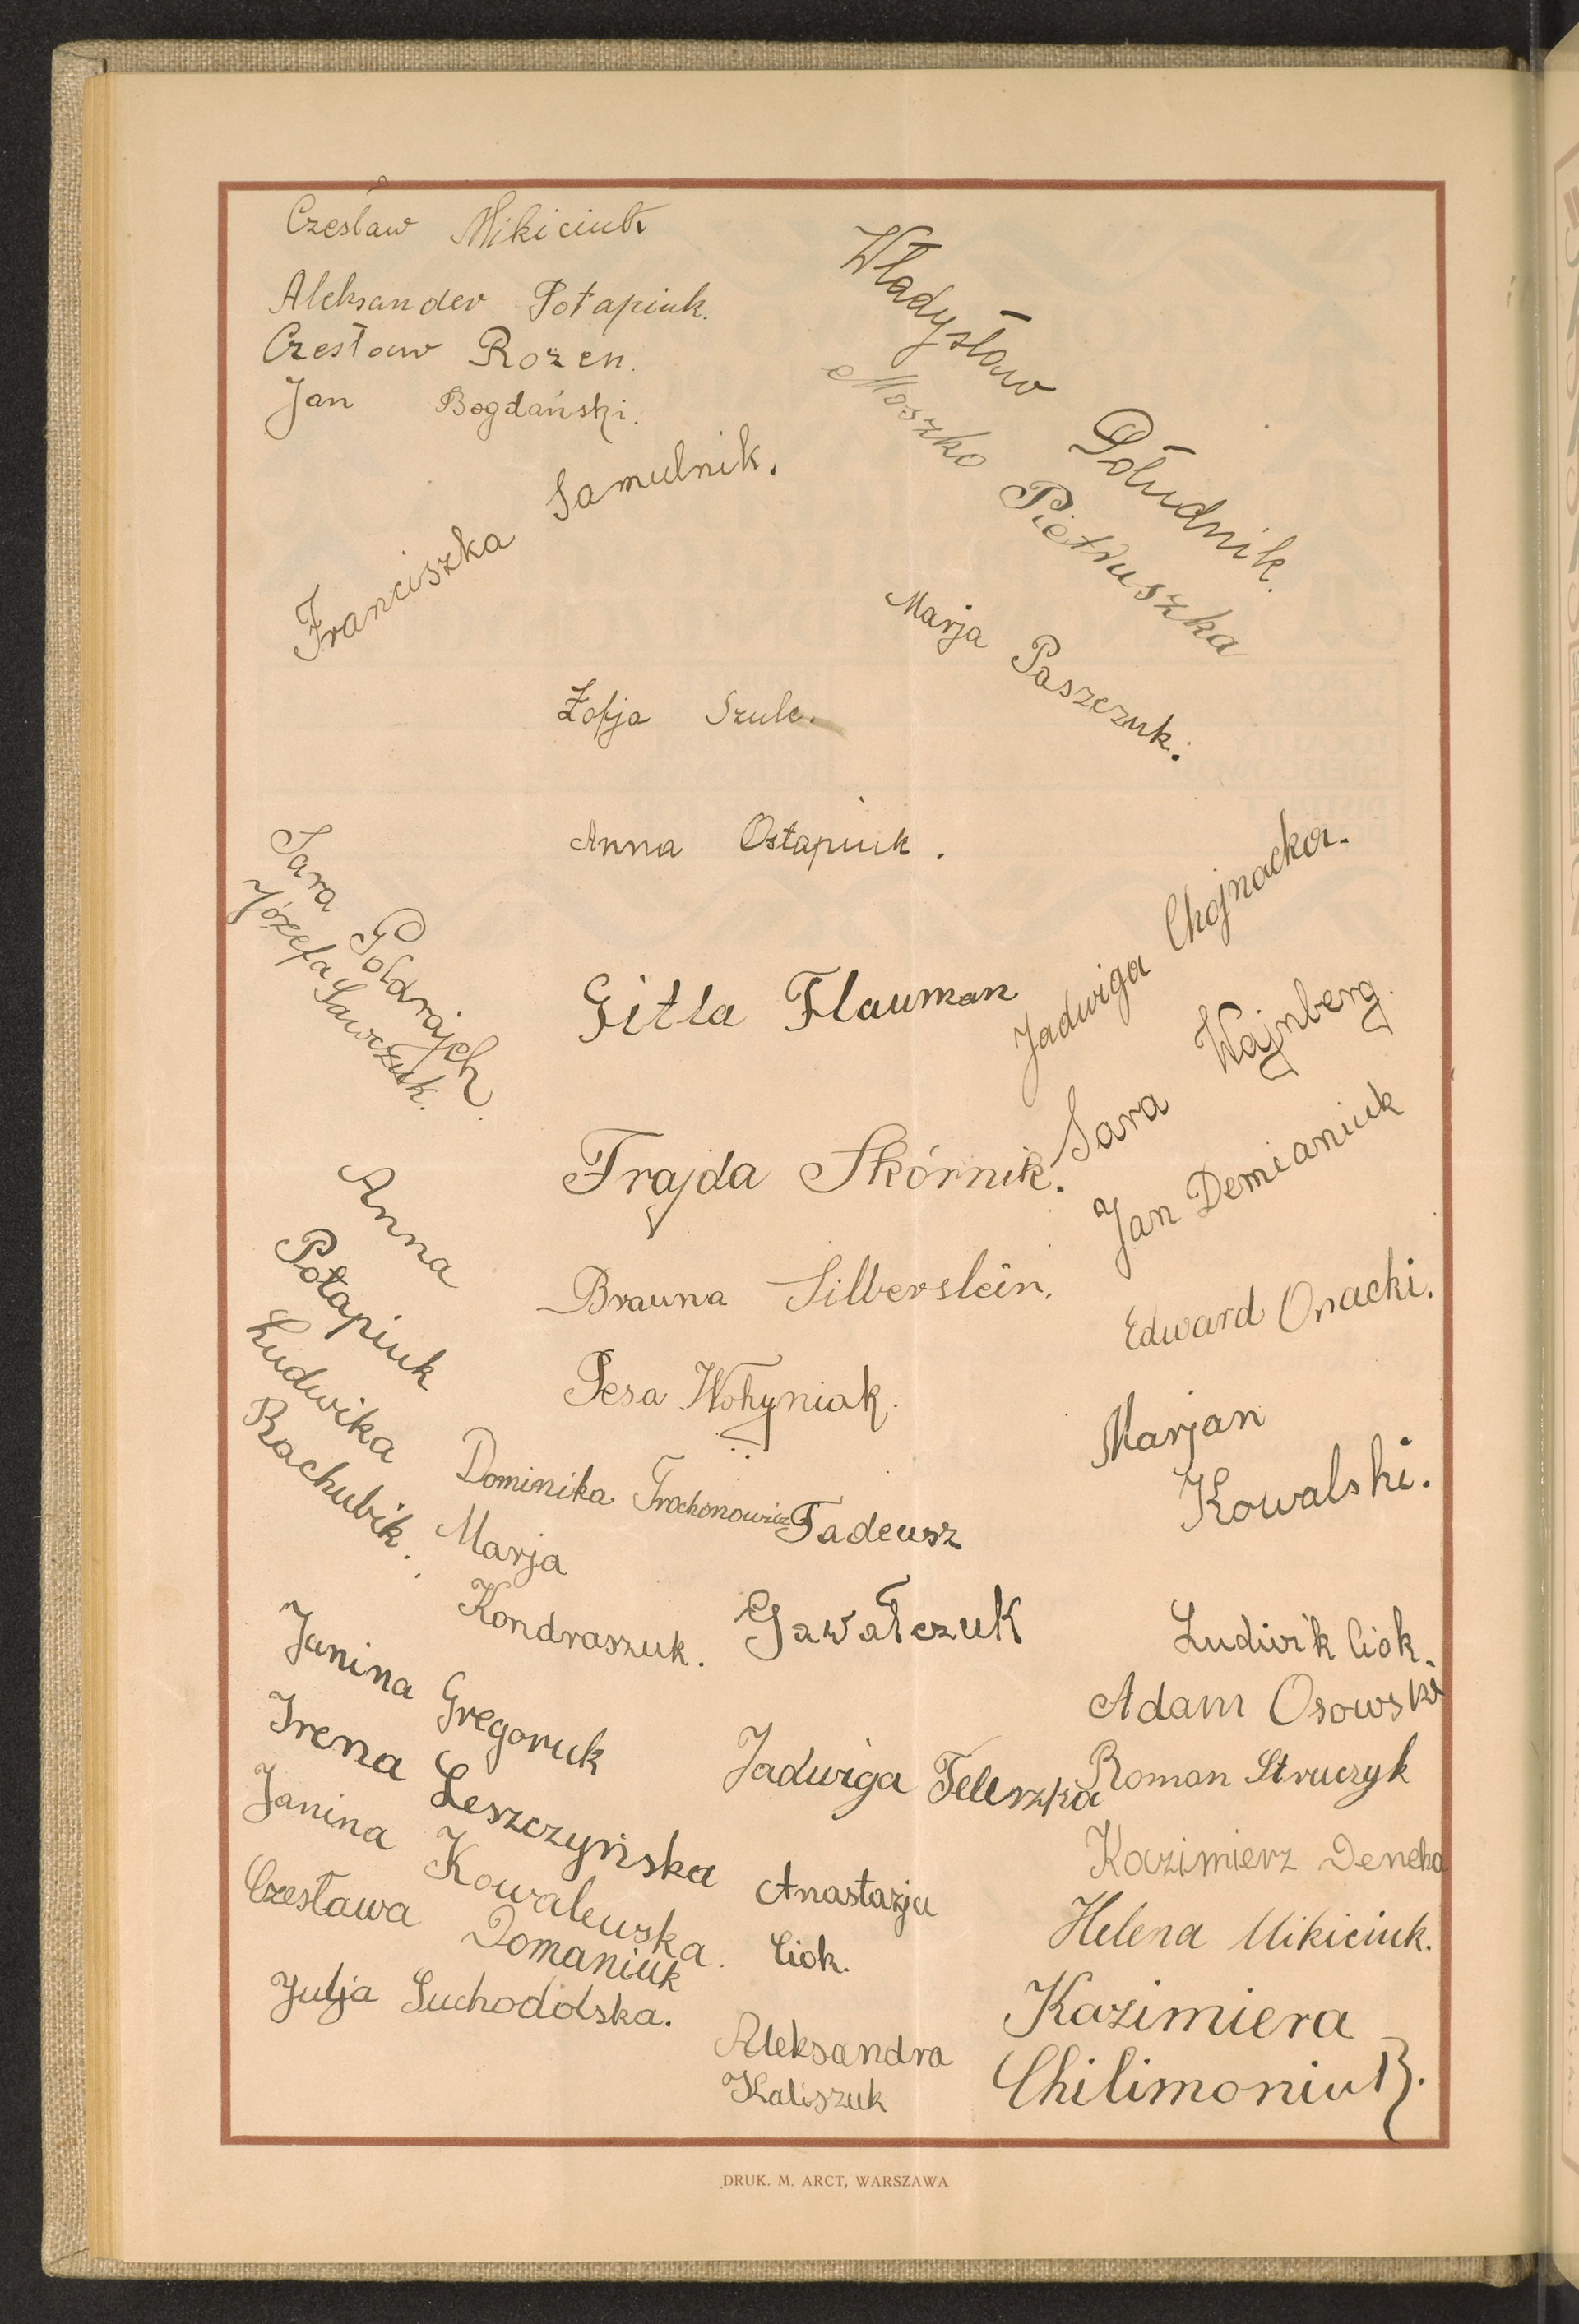 Czesław Mikiciuk
Aleksander Potapiuk.
Czesław Rozen.
Jan Bogdański.
Franciszka Samulnik.
Władysław Południk.
Moszko Pietruszka
Marja Paszczuk.
Zofja Szulc.
Anna Ostapiuk.
Sara Goldrajch.
Józefa Sawczuk.
Gitla Flauman
Jadwiga Chojnacka.
Sara Wajnberg.
Frajda Skórnik.
Jan Demianiuk
Anna
Potapiuk
Brauna Silberstein.
Edward Onacki.
Ludwika
Rachubik.
Pesa Wohyniak.
Marjan
Kowalski.
Dominika Trochonowicz
Marja
Kondraszuk.
Tadeusz
Gawałczuk
Ludwik Ciok.
Adam Osowski
Janina Gregoruk
Irena Leszczyńska
Jadwiga Teleszka
Roman Struczyk
Janina Kowalewska.
Kazimierz Deneka
Czesława Domaniuk
Anastazja
Ciok.
Helena Mikiciuk.
Julja Suchodolska.
Kazimiera
Chilimoniuk.
Aleksandra
Kaliszuk
DRUK. M. ARCT, WARSZAWA